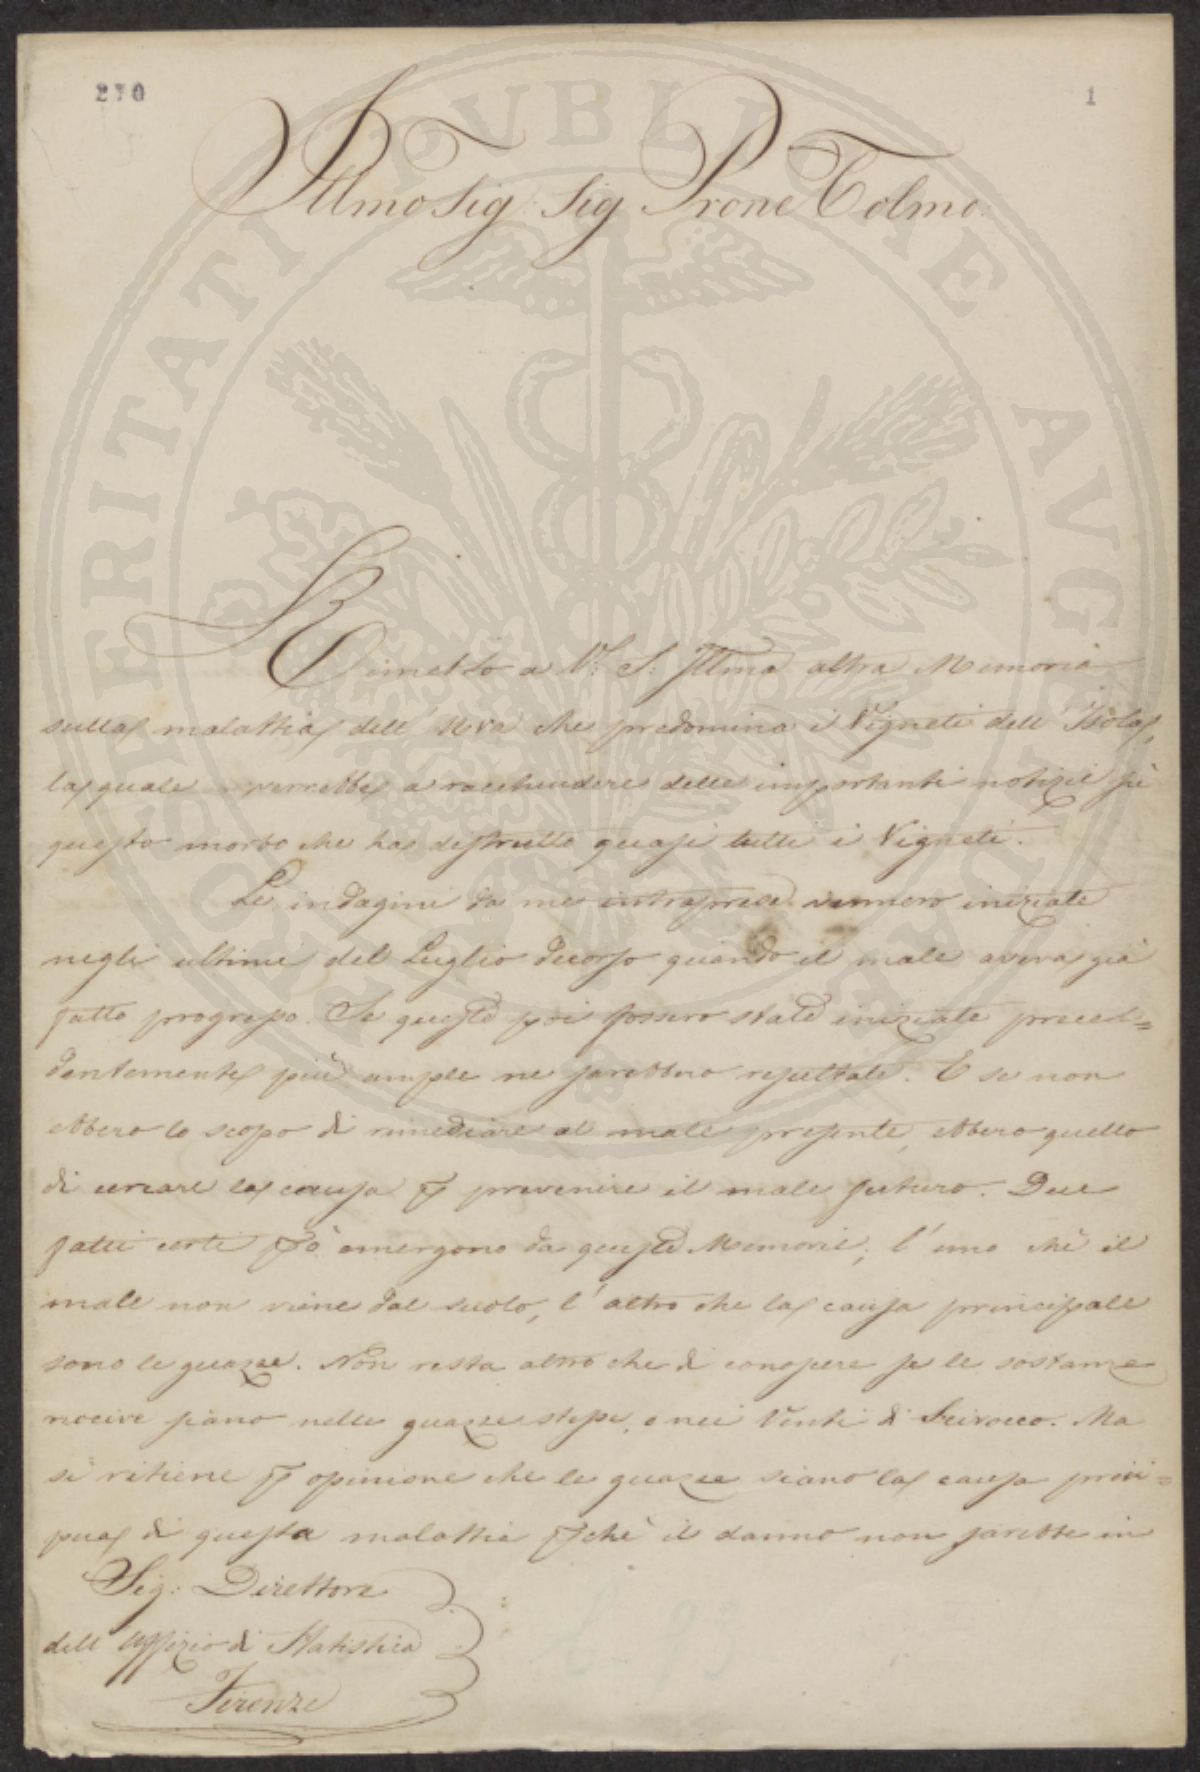 270 1
Illmo Sig: Sig Prone Colmo:
Rimetto a V: S: Illma altra Memoria
sulla malattia dell' Uva che predomina i Vigneti dell' Isola,
la quale verrebbe a racchiudere delle importanti notizie su
questo morbo che ha distrutto quasi tutti i Vigneti.
Le indagini da me intraprese vennero iniziate
negli ultimi del Luglio decorso quando il male aveva già
fatto progresso. Se queste poi fossero state iniziate prece=
dentemente più ample ne sarebbero resultate. E se non
ebbero lo scopo di rimediare al male presente, ebbero quello
di cercare la causa p prevenire il male futuro. Due
fatti certi pò emergono da queste Memorie; l' uno che il
male non viene dal suolo, l' altro che la causa principale
sono le guazze. Non resta altro che di conoscere se le sostanze
nocive siano nelle guazze stesse, o nei Venti di Scirocco. Ma
si ritiene p opinione che le guazze siano la causa preci=
pua di questa malattia pchè il danno non sarebbe in
Sig: Direttore
dell Uffizio di Statistica
Firenze
PROSPERITATI PUBLICAE AVGENDAE